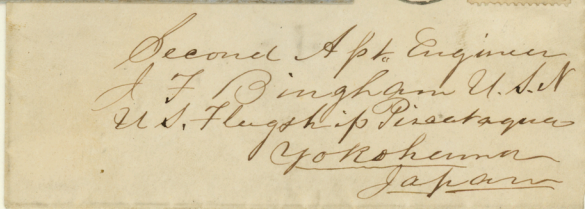 Second Asst. Engineer
J F Bingham U.S.N
U S. Flagship Piscataqua
Yokohama
Japan